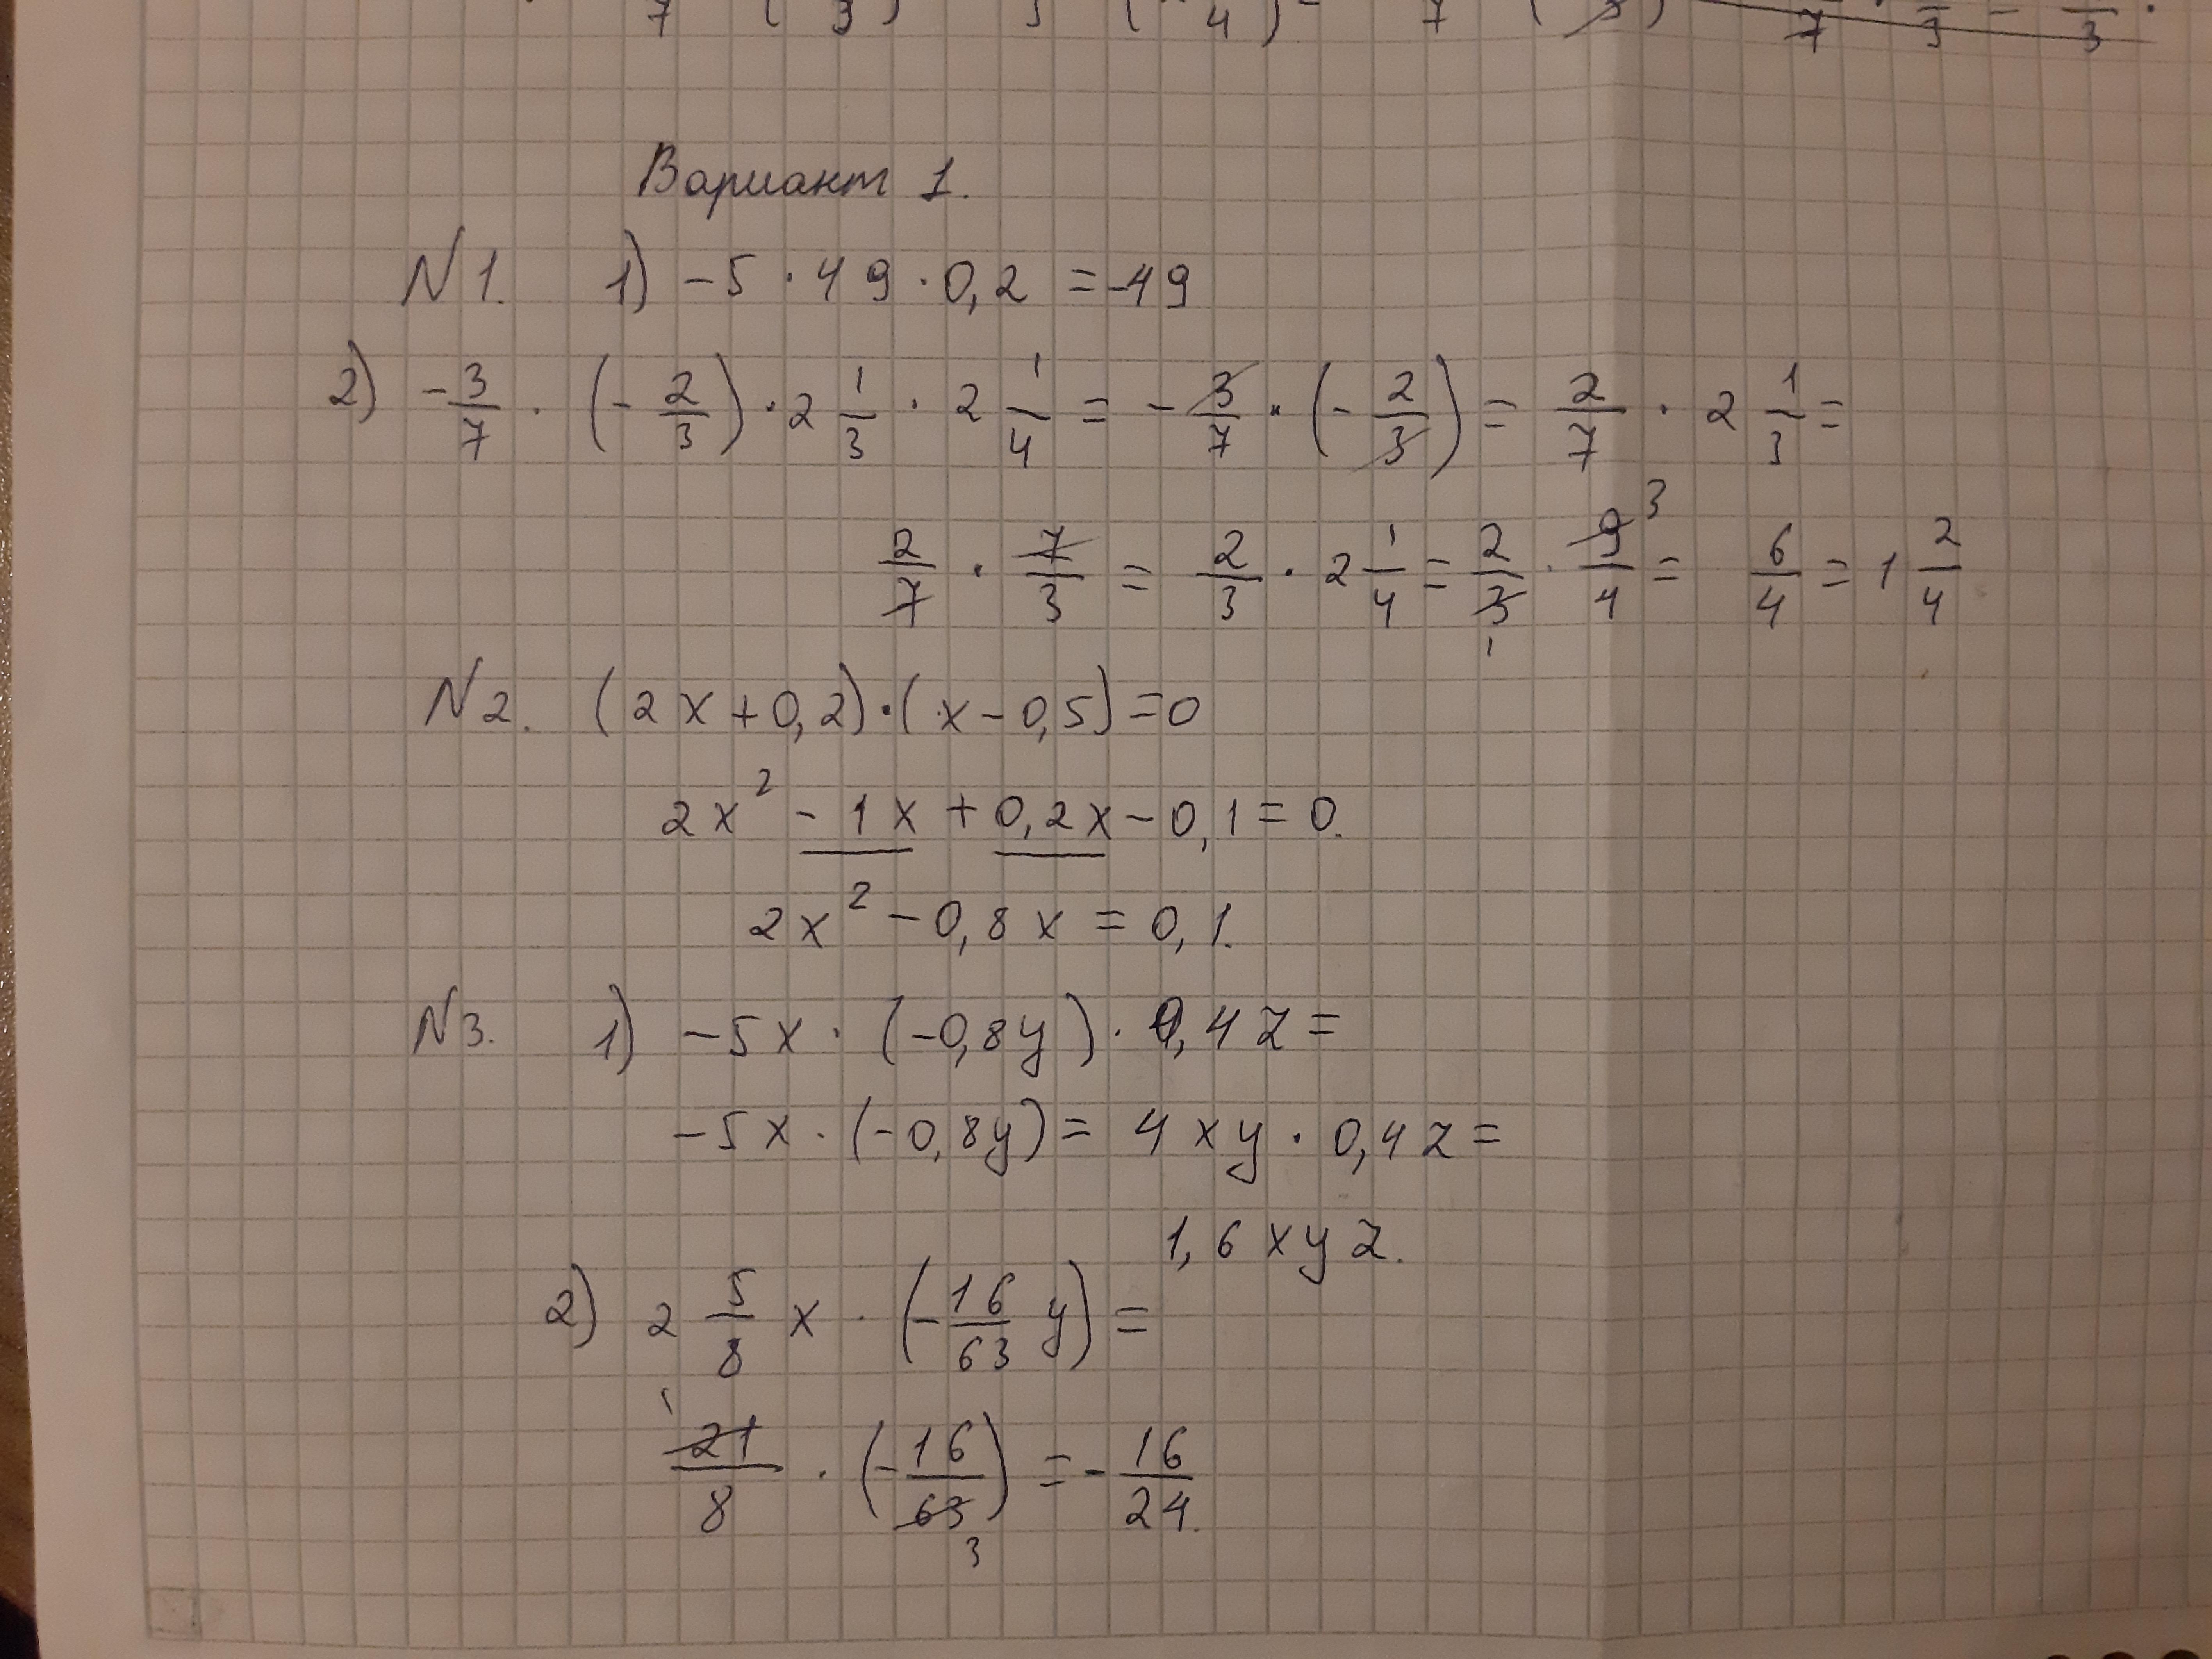 Вариант 1.
N1. 1) -5 · 49 · 0,2 = -49
2) -3/7 · (-2/3) · 2 1/3 · 2 1/4 = -3/7 · (-2/3) = 2/7 · 2 1/3 =
2/7 · 7/3 = 2/3 · 2 1/4 = 2/3 1 · 9/4 3 = 6/4 = 1 2/4
N2. (2x+0,2)·(x-0,5)=0
2x² - 1x + 0,2x - 0,1 = 0.
2x² - 0,8x = 0,1.
N3. 1) -5x · (-0,8y) · 0,4z =
-5x · (-0,8y) = 4xy · 0,4z =
1,6xyz.
2) 2 5/8 x · (-16/63 y) =
1 21/8 · (-16/63 3) = -16/24.